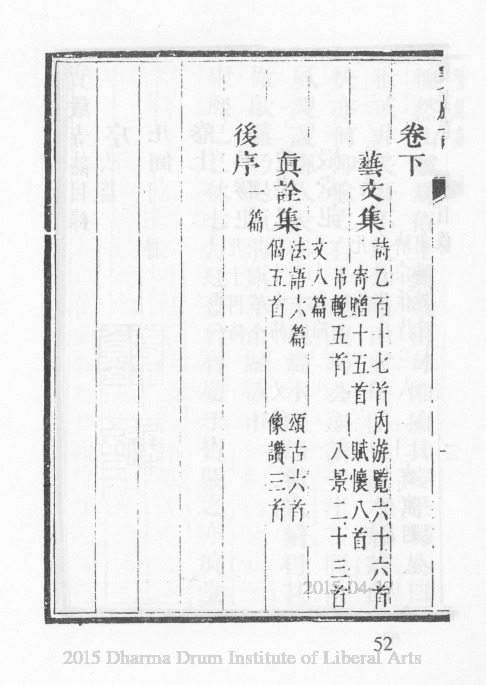 卷下
藝文集
詩乙百十七首內游覽六十六首
寄贈十五首 賦懷八首
吊輓五首 八景二十三首
文八篇
眞詮集
法語六篇 頌古六首
偈五首 像讚三首
後序
篇
2015-04-17
52
2015 Dharma Drum Institute of Liberal Arts